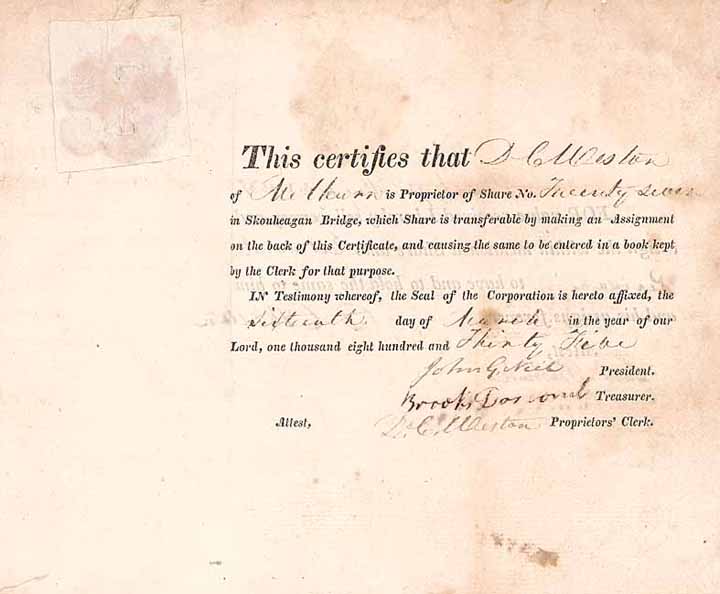 This certifies that D C Weston
of is Proprietor of Share No. Twenty Seven
in Skouheagan Bridge, which Share is transferable by making an Assignment
on the back of this Certificate, and causing the same to be entered in a book kept
by the Clerk for that purpose.
IN Testimony whereof, the Seal of the Corporation is hereto affixed, the
Sixteenth day of March in the year of our
Lord, one thousand eight hundred and Thirty Five
John G Neil President.
Brooks Treasurer.
Attest, D. C. Weston Proprietors' Clerk.